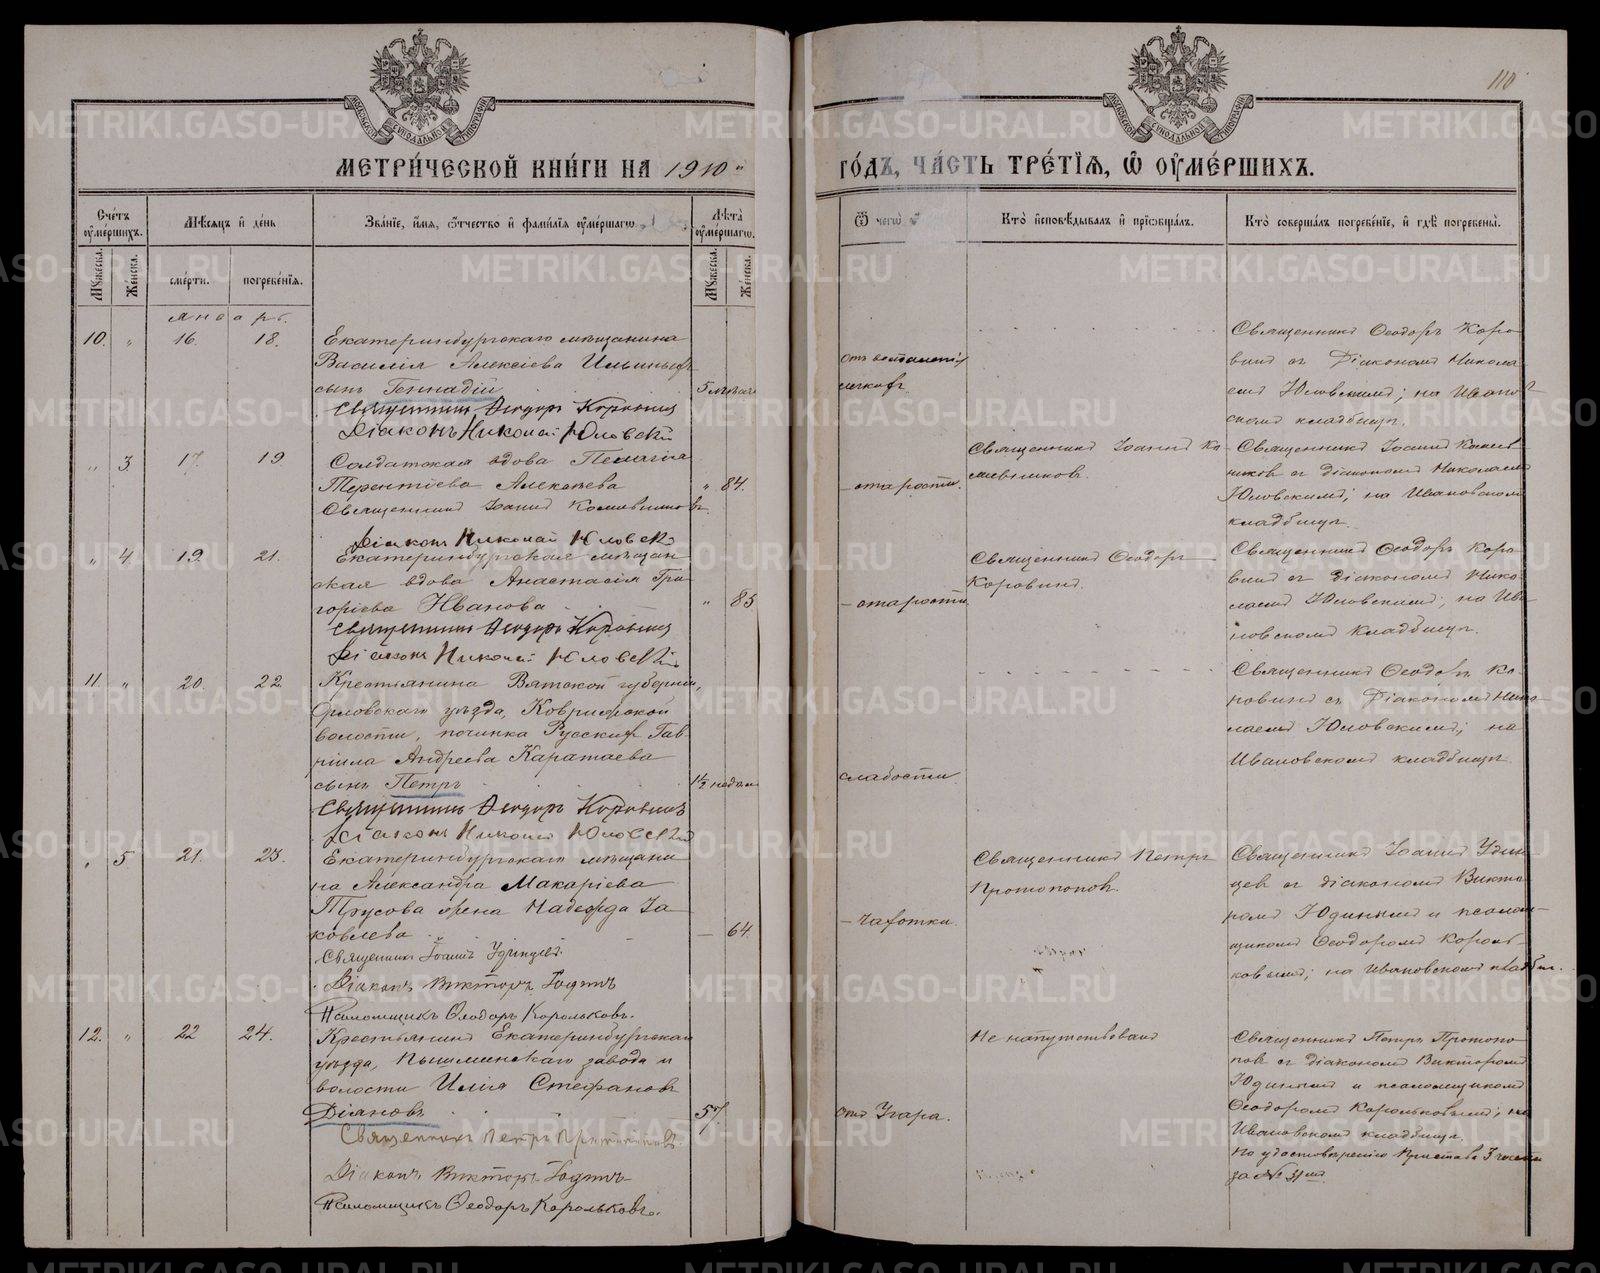 110
МЕТРИ́ЧЕСКОЙ КНИ́ГИ НА 1910 ГО́ДЪ, ЧА́СТЬ ТРЕ́ТІЯ, Ѿ ОУМЕ́РШИХЪ.
Счетъ оумершихъ.
Мѣсяцъ и день
Званіе, имя, отчество и фамилія оумершагѡ.
Лѣта оумершагѡ.
Ѿ чегѡ
Кто исповѣдывалъ и пріобщалъ.
Кто совершалъ погребеніе, и гдѣ погребены.
Мужеска.
Женска.
смерти.
погребенія.
Мужеска.
Женска.
январь.
10. " 16. 18.
Екатеринбургскаго мѣщанина
Василія Алексіева Ильиныхъ
сынъ Геннадій
5 мѣсяц
Священникъ Ѳеодоръ Коровинъ
Діаконъ Николай Юловскій
отъ воспаленія
легкихъ
Священникъ Ѳеодоръ Коро-
винъ съ Діакономъ Никола-
емъ Юловскимъ; на Иванов-
скомъ кладбищѣ.
" 3. 17. 19.
Солдатская вдова Пелагія
Терентіева Алексѣева
" 84.
Священникъ Іоаннъ
Діаконъ Николай Юловскій
- старости.
Священникъ Іоаннъ
Священникъ Іоаннъ
съ діакономъ Николаемъ
Юловскимъ; на Ивановскомъ
кладбищѣ.
" 4. 19. 21.
Екатеринбургская мѣщан-
ская вдова Анастасія Гри-
горіева Иванова
" 85
Священникъ Ѳеодоръ Коровинъ
Діаконъ Николай Юловскій
- старости
Священникъ Ѳеодоръ
Коровинъ.
Священникъ Ѳеодоръ Коро-
винъ съ діакономъ Нико-
лаемъ Юловскимъ; на Ива-
новскомъ кладбищѣ.
11. " 20. 22.
Крестьянина Вятской губерніи,
Орловскаго уѣзда,
волости, починка Русскихъ Гав-
ріила Андреева Каратаева
сынъ Петръ
1½ недѣли
Священникъ Ѳеодоръ Коровинъ
Діаконъ Николай Юловскій
слабости
Священникъ Ѳеодоръ Ко-
ровинъ съ Діакономъ Нико-
лаемъ Юловскимъ; на
Ивановскомъ кладбищѣ.
" 5 21. 23.
Екатеринбургскаго мѣщани-
на Александра Макаріева
Трусова жена Надежда Іа-
ковлева
— 64.
Священникъ Іоаннъ Удинцевъ.
Діаконъ Викторъ Юдинъ
Псаломщикъ Ѳеодоръ Корольковъ.
- чахотки.
Священникъ Петръ
Протопоповъ.
Священникъ Іоаннъ Удин-
цевъ съ діакономъ Викто-
ромъ Юдинымъ и псалом-
щикомъ Ѳеодоромъ Король-
ковымъ; на Ивановскомъ кладбищ.
12. " 22 24.
Крестьянинъ Екатеринбургскаго
уѣзда, Пышминскаго завода и
волости Илія Стефановъ
Діановъ
57.
Священникъ Петръ Протопоповъ.
Діаконъ Викторъ Юдинъ
Псаломщикъ Ѳеодоръ Корольковъ.
отъ Угара.
Не напутствованъ
Священникъ Петръ Протопо-
повъ съ діакономъ Викторомъ
Юдинымъ и псаломщикомъ
Ѳеодоромъ Корольковымъ; на
Ивановскомъ кладбищѣ.
По удостовѣренію Пристава 3 части
за №
METRIKI.GASO-URAL.RU